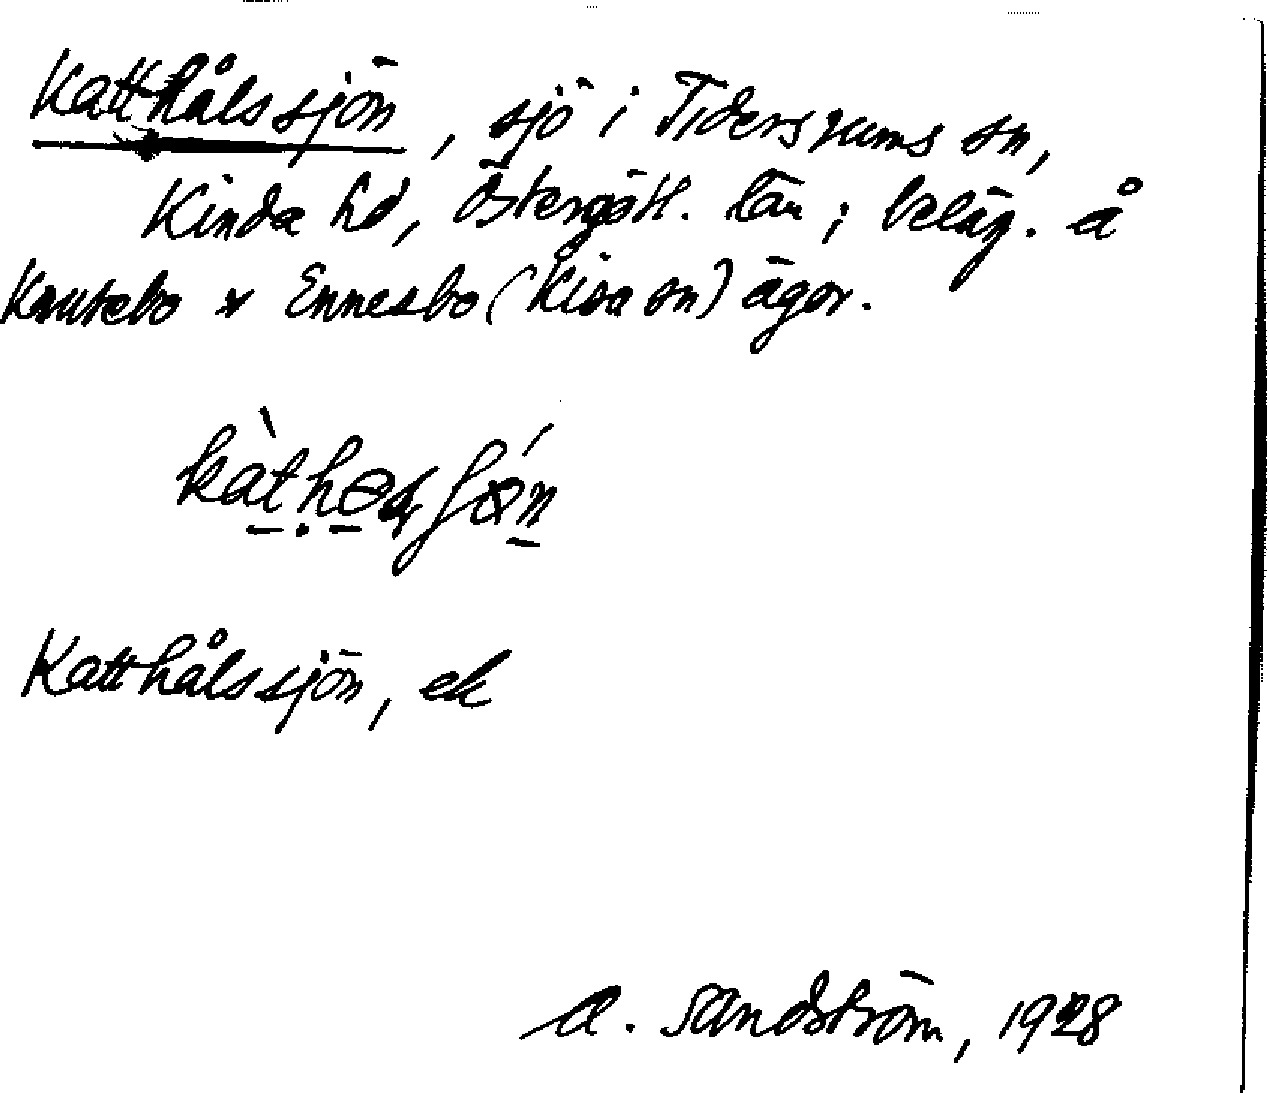 Katthålssjön, sjö i Tidersrums sn,
Kinda hd, Östergötl. län; beläg. å
Knutebo & Ennesbo (Kisa sn) ägor.
Katthålssjön, ek
A. Sandström, 1928